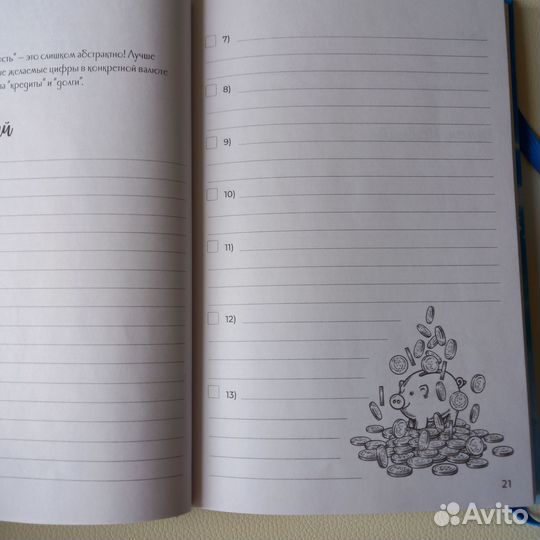 – это слишком абстрактно! Лучше
желаемые цифры в конкретной валюте
"кредиты" и "долги".
7)
8)
9)
10)
11)
12)
13)
21
Avito